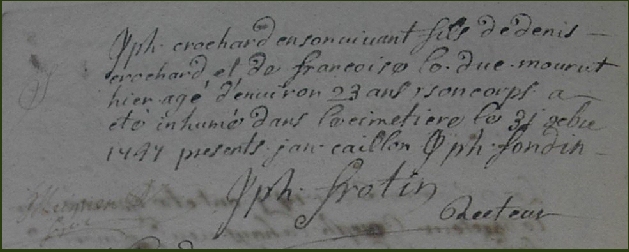 Jph crochard en son vivant fils de denis
crochard et de francoise le duc mourut
hier agé d'environ 23 ans son corps a
eté inhumé dans le cimetiere le 31 xbre
1747 presents jan caillon Jph fondin
Jph frotin
Recteur